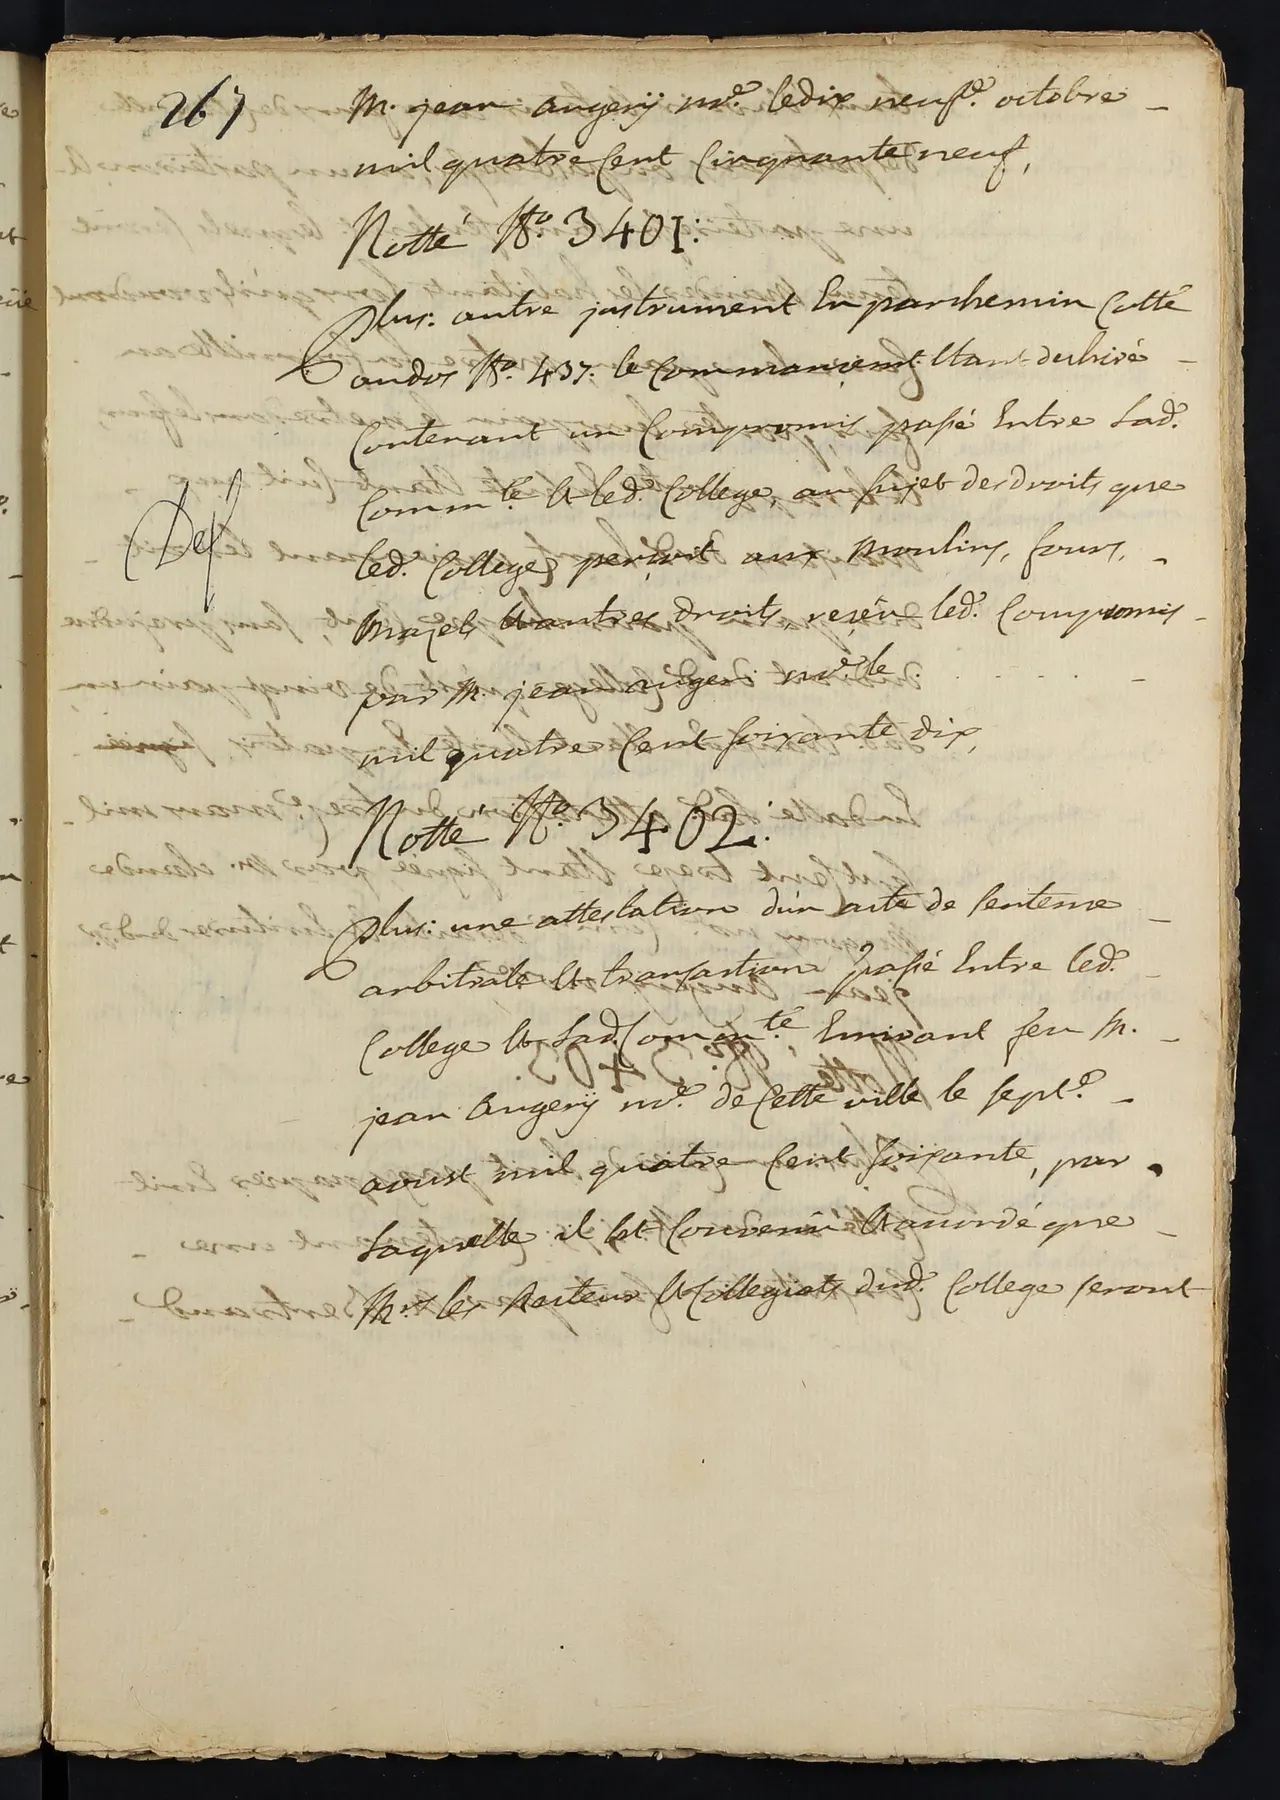 267
M. jean Augerÿ no.re le dix neufe. octobre
mil quatre Cent Cinquante neuf,
Notté No. 3401:
Plus: autre jnstrument En parchemin Cotté
au dos No. 437: le Commancemt. Etant deshiré
Contenant un Compromis passé Entre Lad.e
Comm.té Et led.e College, au sujet des droits que
led.e College perçoit aux moulins, fours,
Mazels Et autres droits reçeu led.e Compromis
par M. jean augeri no.re le . . . . .
mil quatre Cent soixante dix,
Notté No. 3402:
Plus: une attestation d'un acte de sentence
arbitralle Et transaction passé Entre led.e
College Et Lad.e Comm.té Ecrivant feu M.
jean Augerÿ no.re de Cette ville le sept.e
aoust mil quatre Cent soixante, par
Laquelle il Est Convenù Et accordé que
Mrs les Recteur Et Collegiats dud.e College seront